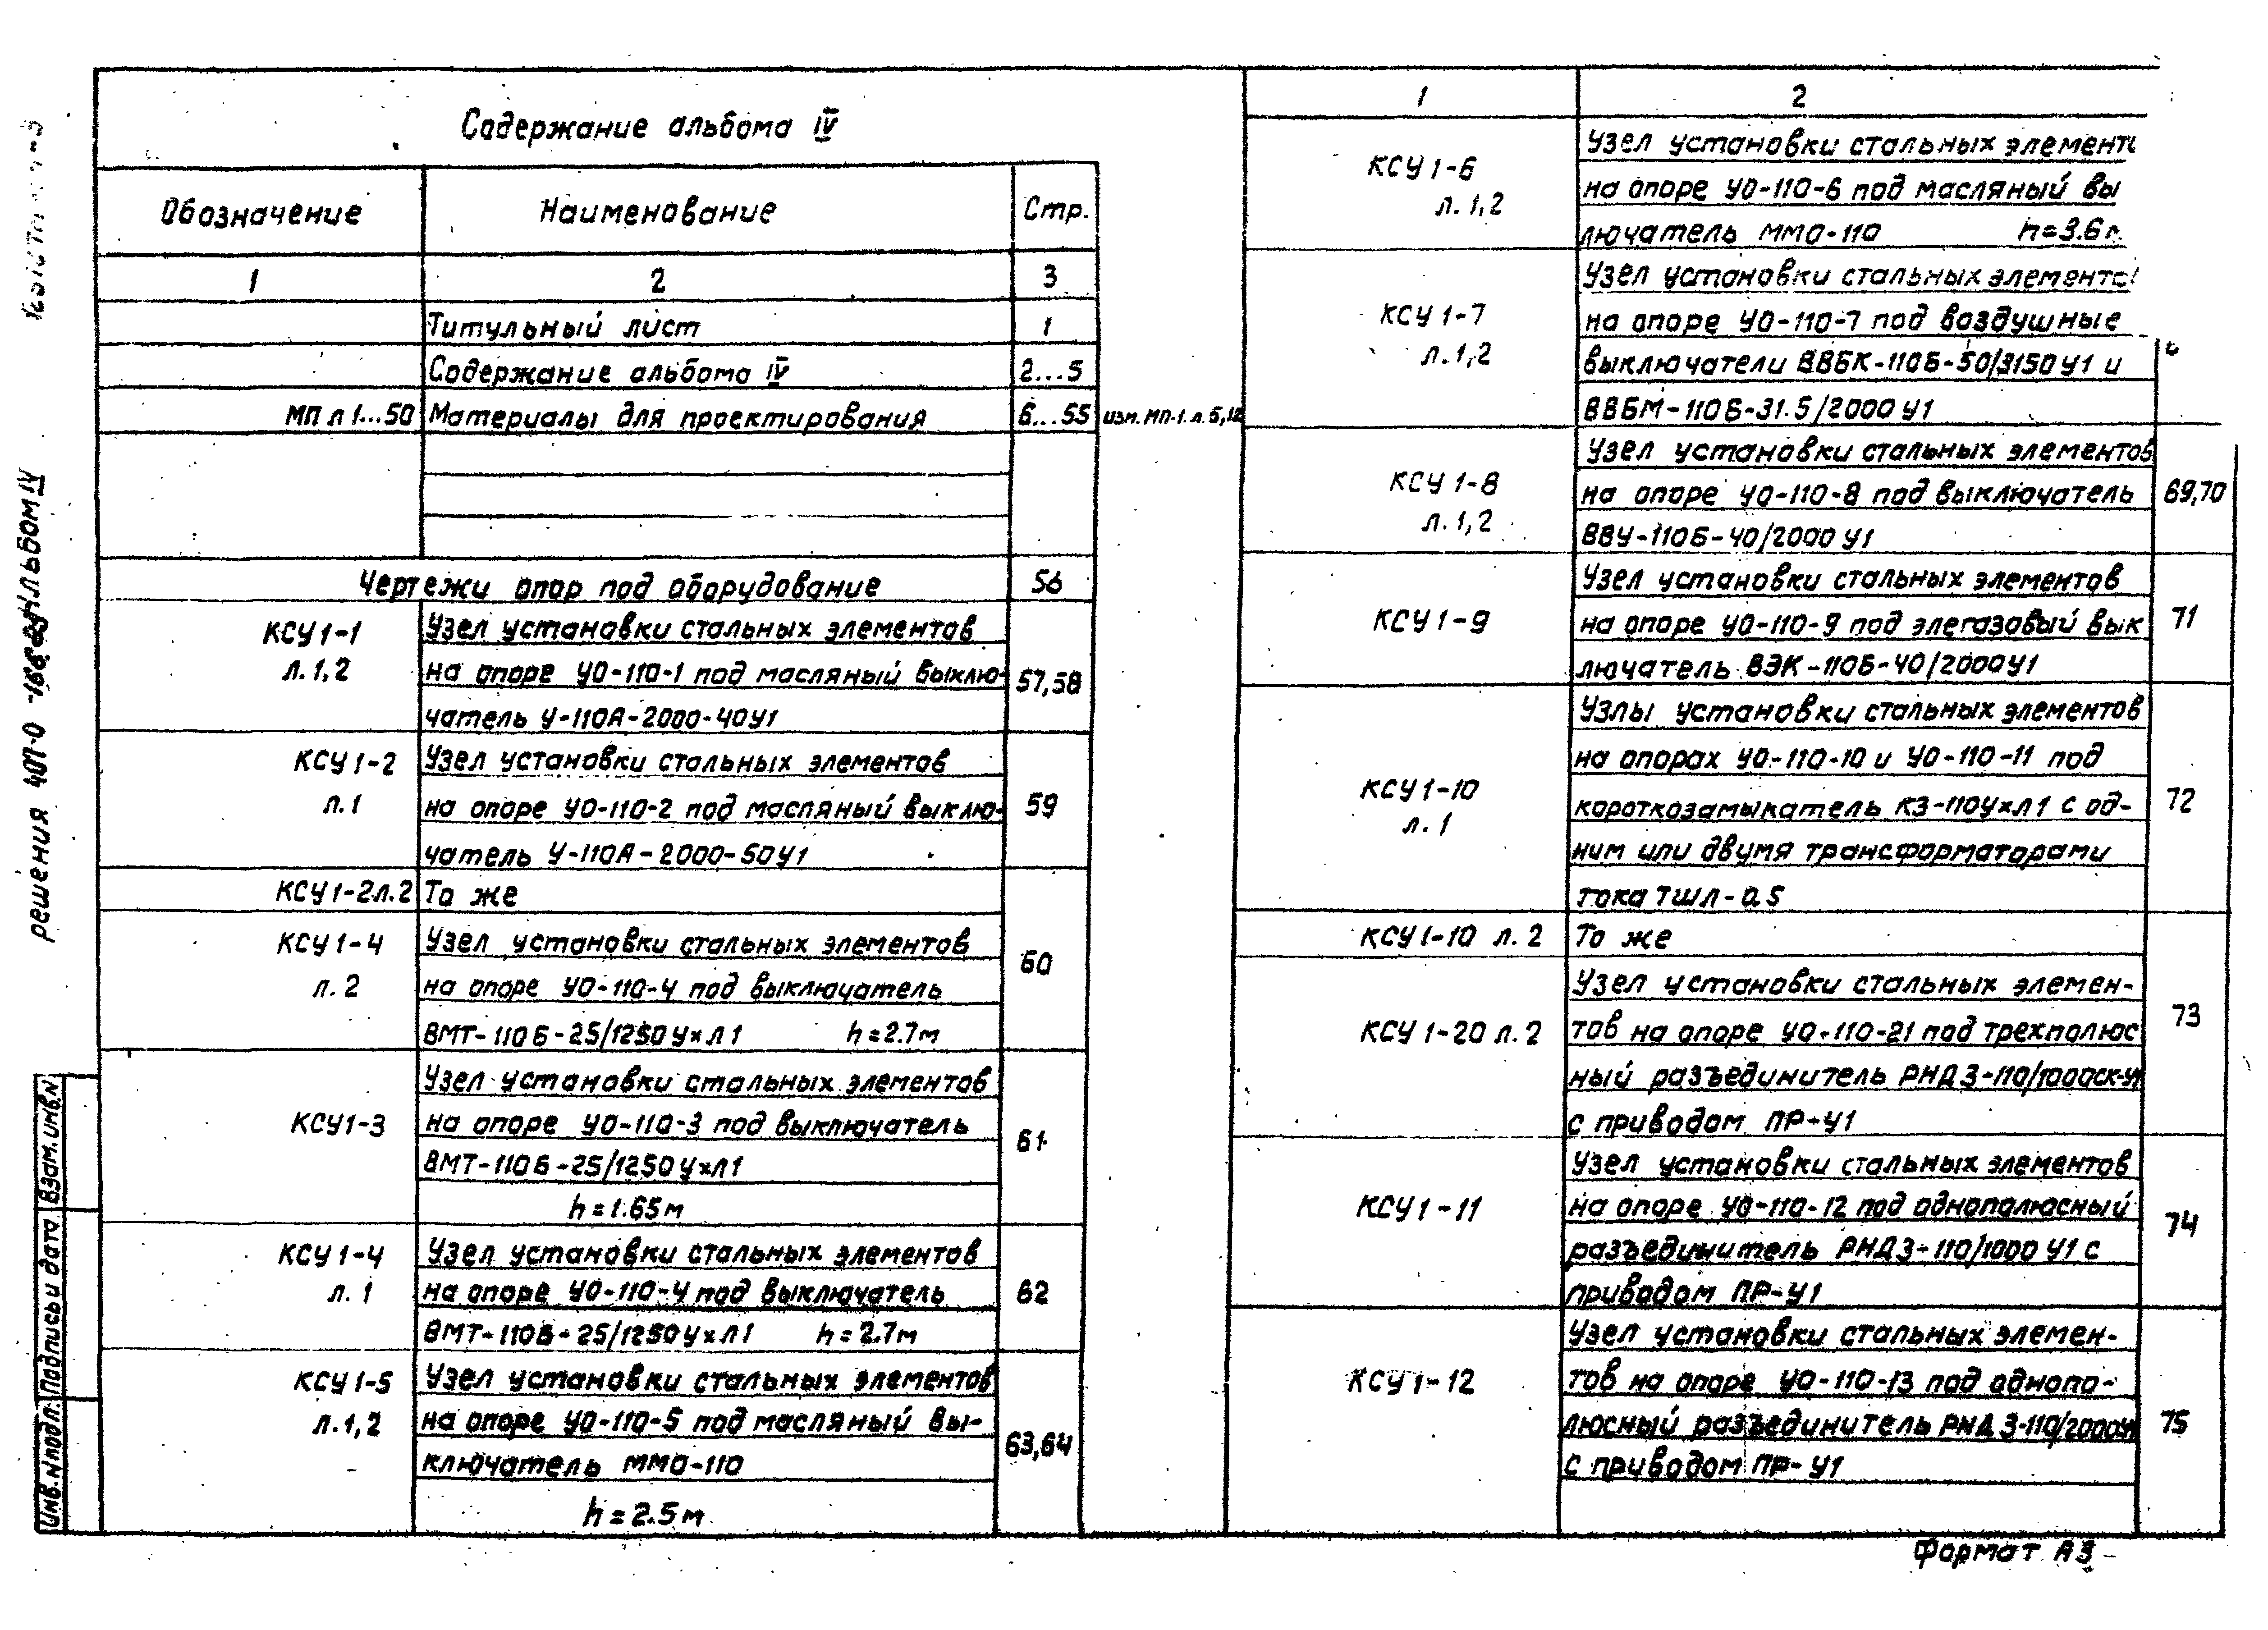 Содержание альбома IV
Обозначение Наименование Стр.
1 2 3
Титульный лист 1
Содержание альбома IV 2...5
МП л 1...50 Материалы для проектирования 6...55 изм. МП-1. л. 5,12
Чертежи опор под оборудование 56
КСУ 1-1 Узел установки стальных элементов
л. 1,2 на опоре УО-110-1 под масляный выклю- 57,58
чатель У-110А-2000-40У1
КСУ 1-2 Узел установки стальных элементов
л.1 на опоре УО-110-2 под масляный выклю- 59
чатель У-110А-2000-50У1
КСУ 1-2л.2 То же
КСУ 1-4 Узел установки стальных элементов 60
л. 2 на опоре УО-110-4 под выключатель
ВМТ-110Б-25/1250УхЛ1 h=2.7м
Узел установки стальных элементов
КСУ1-3 на опоре УО-110-3 под выключатель 61
ВМТ-110Б-25/1250УхЛ1
h=1.65м
КСУ 1-4 Узел установки стальных элементов
л. 1 на опоре УО-110-4 под выключатель 62
ВМТ-110Б-25/1250УхЛ1 h=2.7м
КСУ 1-5 Узел установки стальных элементов
л.1,2 на опоре УО-110-5 под масляный вы- 63,64
ключатель ММО-110
h=2.5м
1 2
Узел установки стальных элемент
КСУ 1-6 на опоре УО-110-6 под масляный вы
л. 1,2 лючатель ММО-110 h=3.6
Узел установки стальных элемент
КСУ 1-7 на опоре УО-110-7 под воздушные
л.1,2 выключатели ВВБК-110Б-50/3150У1 и
ВВБМ-110Б-31.5/2000У1
Узел установки стальных элементов
КСУ 1-8 на опоре УО-110-8 под выключатель 69,70
л.1,2 ВВУ-110Б-40/2000У1
Узел установки стальных элементов
КСУ 1-9 на опоре УО-110-9 под элегазовый вык 71
лючатель ВЭК-110Б-40/2000У1
Узлы установки стальных элементов
на опорах УО-110-10 и УО-110-11 под
КСУ 1-10 короткозамыкатель КЗ-110УхЛ1 с од- 72
л. 1 ним или двумя трансформаторами
тока ТШЛ-0.5
КСУ1-10 л. 2 То же
Узел установки стальных элемен-
КСУ 1-20 л. 2 тов на опоре УО-110-21 под трехполюс 73
ный разъединитель РНДЗ-110/1000СК-У1
с приводом ПР-У1
Узел установки стальных элементов
КСУ1-11 на опоре УО-110-12 под однополюсный 74
разъединитель РНДЗ-110/1000У1 с
приводом ПР-У1
Узел установки стальных элемен-
КСУ1-12 тов на опоре УО-110-13 под однопо-
люсный разъединитель РНДЗ-110/2000У1 75
с приводом ПР-У1
Формат А3
решения 407-0-166.85 Альбом IV
Инв. N подл. Подпись и дата Взам. инв. N